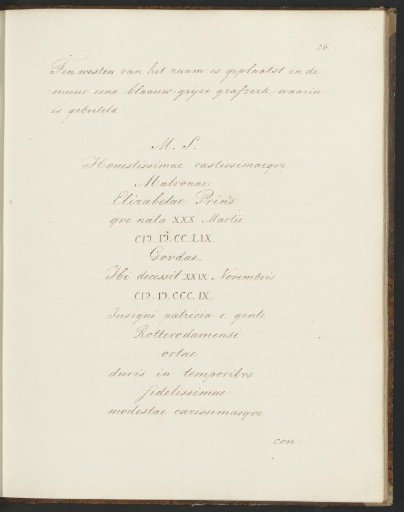 26.
Ten westen van het raam is geplaatst in de
muur eene blaauw-grijze grafzerk, waarin
is gebeiteld.
M. S.
Honestissimae castissimaeqve
Matronae
Elizabetae Prins
qve nata XXX Martii
CIↃ.IↃ.CC.LIX.
Govdae.
Ibi decessit XXIX. Novembris
CIↃ.IↃ.CCC.IX.
Insigni patricia e gente
Rotterodamensi
ortae
duris in temporibvs
fidelissimae
modestae carissimaeqve
con-